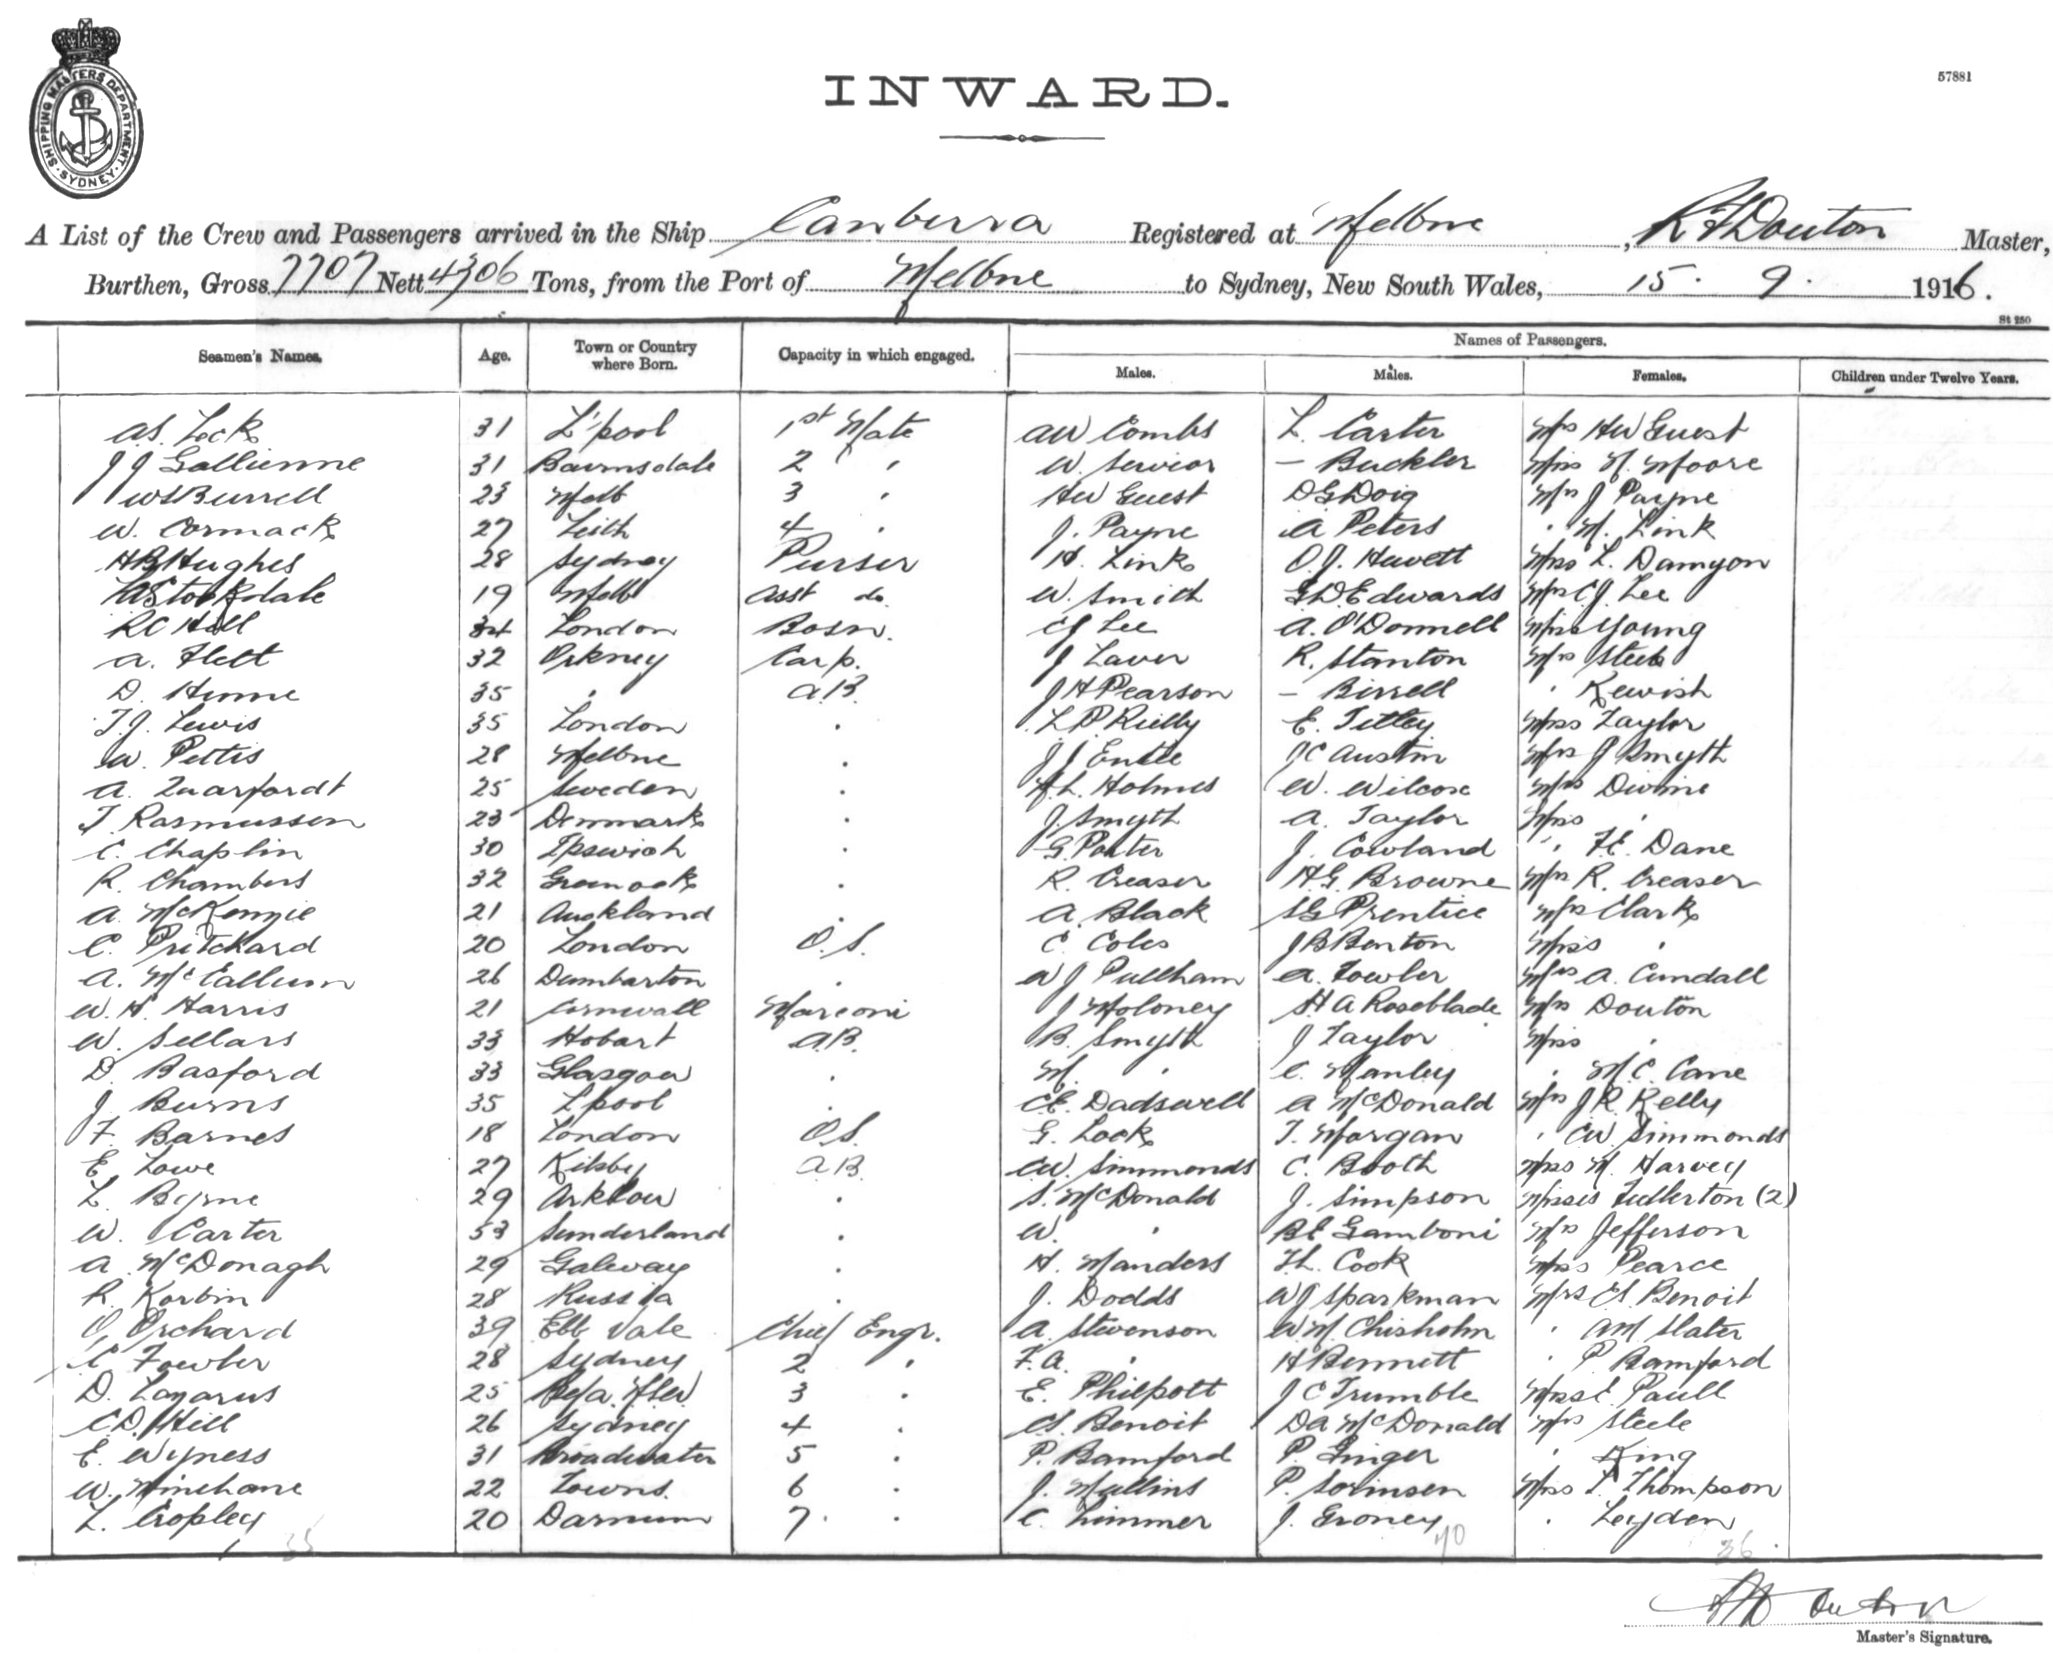 SHIPPING MASTERS DEPARTMENT · SYDNEY ·
INWARD.
57881
A List of the Crew and Passengers arrived in the Ship Canberra Registered at Melbne, R F Douton Master,
Burthen, Gross 7707 Nett 4306 Tons, from the Port of Melbne to Sydney, New South Wales, 15. 9. 1916.
St 250
Seamen's Names. Age. Town or Country where Born. Capacity in which engaged. Names of Passengers.
Males. Males. Females. Children under Twelve Years.
A.S. Lock 31 L'pool 1st Mate AW Combs L. Carter Mrs HW Guest
J J Gallienne 31 Bairnsdale 2 " W. Serviar — Buckler Miss M. Moore
WS Burrell 23 Melb 3 " HW Guest D G Doig Mrs J Payne
W. Cormack 27 Leith 4 " J. Payne A Peters " M. Link
HB Hughes 28 Sydney Purser H. Link O.J. Hewett Miss L. Damyon
Stockdale 19 Melb Asst do W. Smith G D Edwards Mrs CJ Lee
RC Hall 34 London Bosn. CJ Lee A. O'Donnell Miss Young
A. Flett 32 Orkney Carp. J Laver R. Stanton Mrs Steele
D. Hume 35 " A.B. J H Pearson — Birrell " Kewish
T.J. Lewis 35 London " L.P. Reilly E. Titley Miss Taylor
W. Pettis 28 Melbne " J J Entle JC Austin Mrs J Smyth
A. Quarfordt 25 Sweden " L. Holmes W. Wilcox Mrs Divine
T Rasmussen 23 Denmark " J. Smyth A. Taylor Miss "
C. Chaplin 30 Ipswich " G Porter J. Cowland " F.E. Dane
R. Chambers 32 Greenock " R. Creaser H.G. Browne Mrs R. Creaser
A. McKenzie 21 Auckland " A. Black S G Prentice Mrs Clark
C. Pritchard 20 London O.S. C. Coles J B Benton Miss "
A. McCallum 26 Dumbarton " W J Pullham A. Fowler Mrs A. Cundall
W. H. Harris 21 Cornwall Marconi J Moloney H A Roseblade Mrs Douton
W. Sellars 33 Hobart A.B. B. Smyth J Taylor Miss "
D. Basford 33 Glasgow " M. " C. Manley " M. C. Cane
J. Burns 35 L'pool " C.E. Dadswell A McDonald Mrs J R Kelly
F. Barnes 18 London O.S. G. Lock T. Morgan " CW Simmonds
E. Lowe 27 Kilsby A.B. CW. Simmonds C. Booth Miss M. Harvey
L. Byrne 29 Arklow " S. McDonald J. Simpson Misses Fullerton (2)
W. Carter 53 Sunderland " W. " B E Gamboni Mrs Jefferson
A McDonagh 29 Galway " H. Manders Th. Cook Miss Pearce
R. Korbin 28 Russia " J. Dodds WJ Sparkman Mrs CS. Benoit
O. Orchard 39 Ebb Vale Chief Engr. A. Stevenson W.M. Chisholm " AM Slater
C. Fowler 28 Sydney 2 " F.A. " H Bennett " P Bamford
D. Lazarus 25 3 " E. Philpott J C Trumble Miss E. Paull
C.D. Hill 26 Sydney 4 " CS. Benoit DA McDonald Mrs Steele
E. Wyness 31 Broadwater 5 " P. Bamford P. Linger " King
W. Minehane 22 Towns. 6 " J. Mullins P. Sorinsen Miss T. Thompson
L. Cropley 20 Darnum 7. " C. Limmer J. Groney " Leyden
35 70 36
Master's Signature.